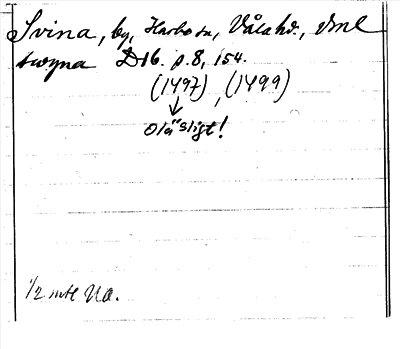 Svina, by, Harbo sn, Våla hd., Vml
swyna D16. p.8, 154.
(1497), (1499)
↓
oläsligt!
1/2 mtl Ua.